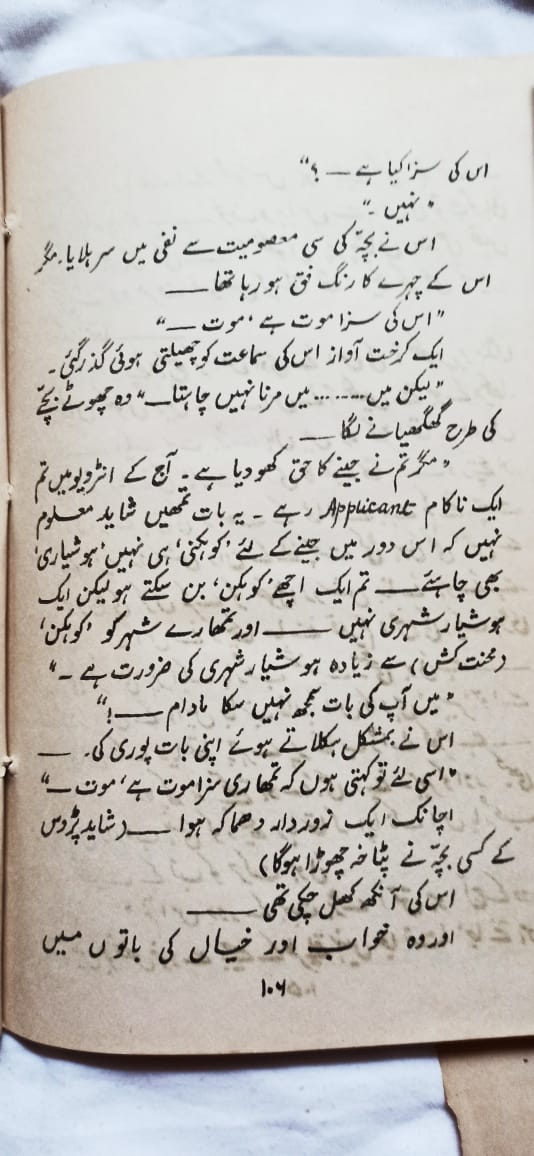 اس کی سزا کیا ہے ــــ ؟"
"نہیں ۔"
اس نے بچّہ کی سی معصومیت سے نفی میں سر ہلایا۔ مگر
اس کے چہرے کا رنگ فق ہو رہا تھا ــــ
"اس کی سزا موت ہے ' موت ــــ"
ایک کرخت آواز اس کی سماعت کو چھیلتی ہوئی گذر گئی۔
"لیکن میں ....... میں مرنا نہیں چاہتا ــــ" وہ چھوٹے بچّے
کی طرح گھگھیانے لگا ــــ
"مگر تم نے جینے کا حق کھو دیا ہے ۔ آج کے انٹرویو میں تم
ایک ناکام Applicant رہے ۔ یہ بات تمھیں شاید معلوم
نہیں کہ اس دور میں جینے کے لئے 'کوہکنی' ہی نہیں 'ہوشیاری'
بھی چاہئے ــــ تم ایک اچھے 'کوہکن' بن سکتے ہو لیکن ایک
ہوشیار شہری نہیں ــــ اور تمھارے شہر کو 'کوہکن'
(محنت کش) سے زیادہ ہوشیار شہری کی ضرورت ہے ۔"
"میں آپ کی بات سمجھ نہیں سکا مادام ــــ !"
اس نے بمشکل ہکلاتے ہوئے اپنی بات پوری کی۔ ــــ
"اسی لئے تو کہتی ہوں کہ تمھاری سزا موت ہے ' موت ــــ"
اچانک ایک زوردار دھماکہ ہوا ــــ (شاید پڑوس
کے کسی بچّہ نے پٹاخہ چھوڑا ہوگا)
اس کی آنکھ کھل چکی تھی ــــ
اور وہ خواب اور خیال کی باتوں میں
۱۰۶